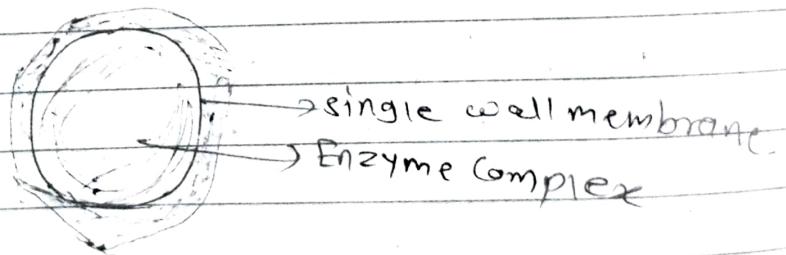 single wall membrane
Enzyme Complex